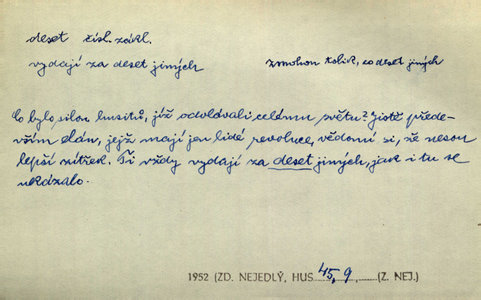 deset čísl. zákl.
vydají za deset jiných
zmohou tolik, co deset jiných
Co bylo silou husitů, jíž odolávali celému světu? Jistě přede-
vším elán, jejž mají jen lidé revoluce, vědomi si, že nesou
lepší zítřek. Ti vždy vydají za deset jiných, jak i tu se
ukázalo.
1952 (ZD. NEJEDLÝ, HUS 45, 9 (Z. NEJ.)